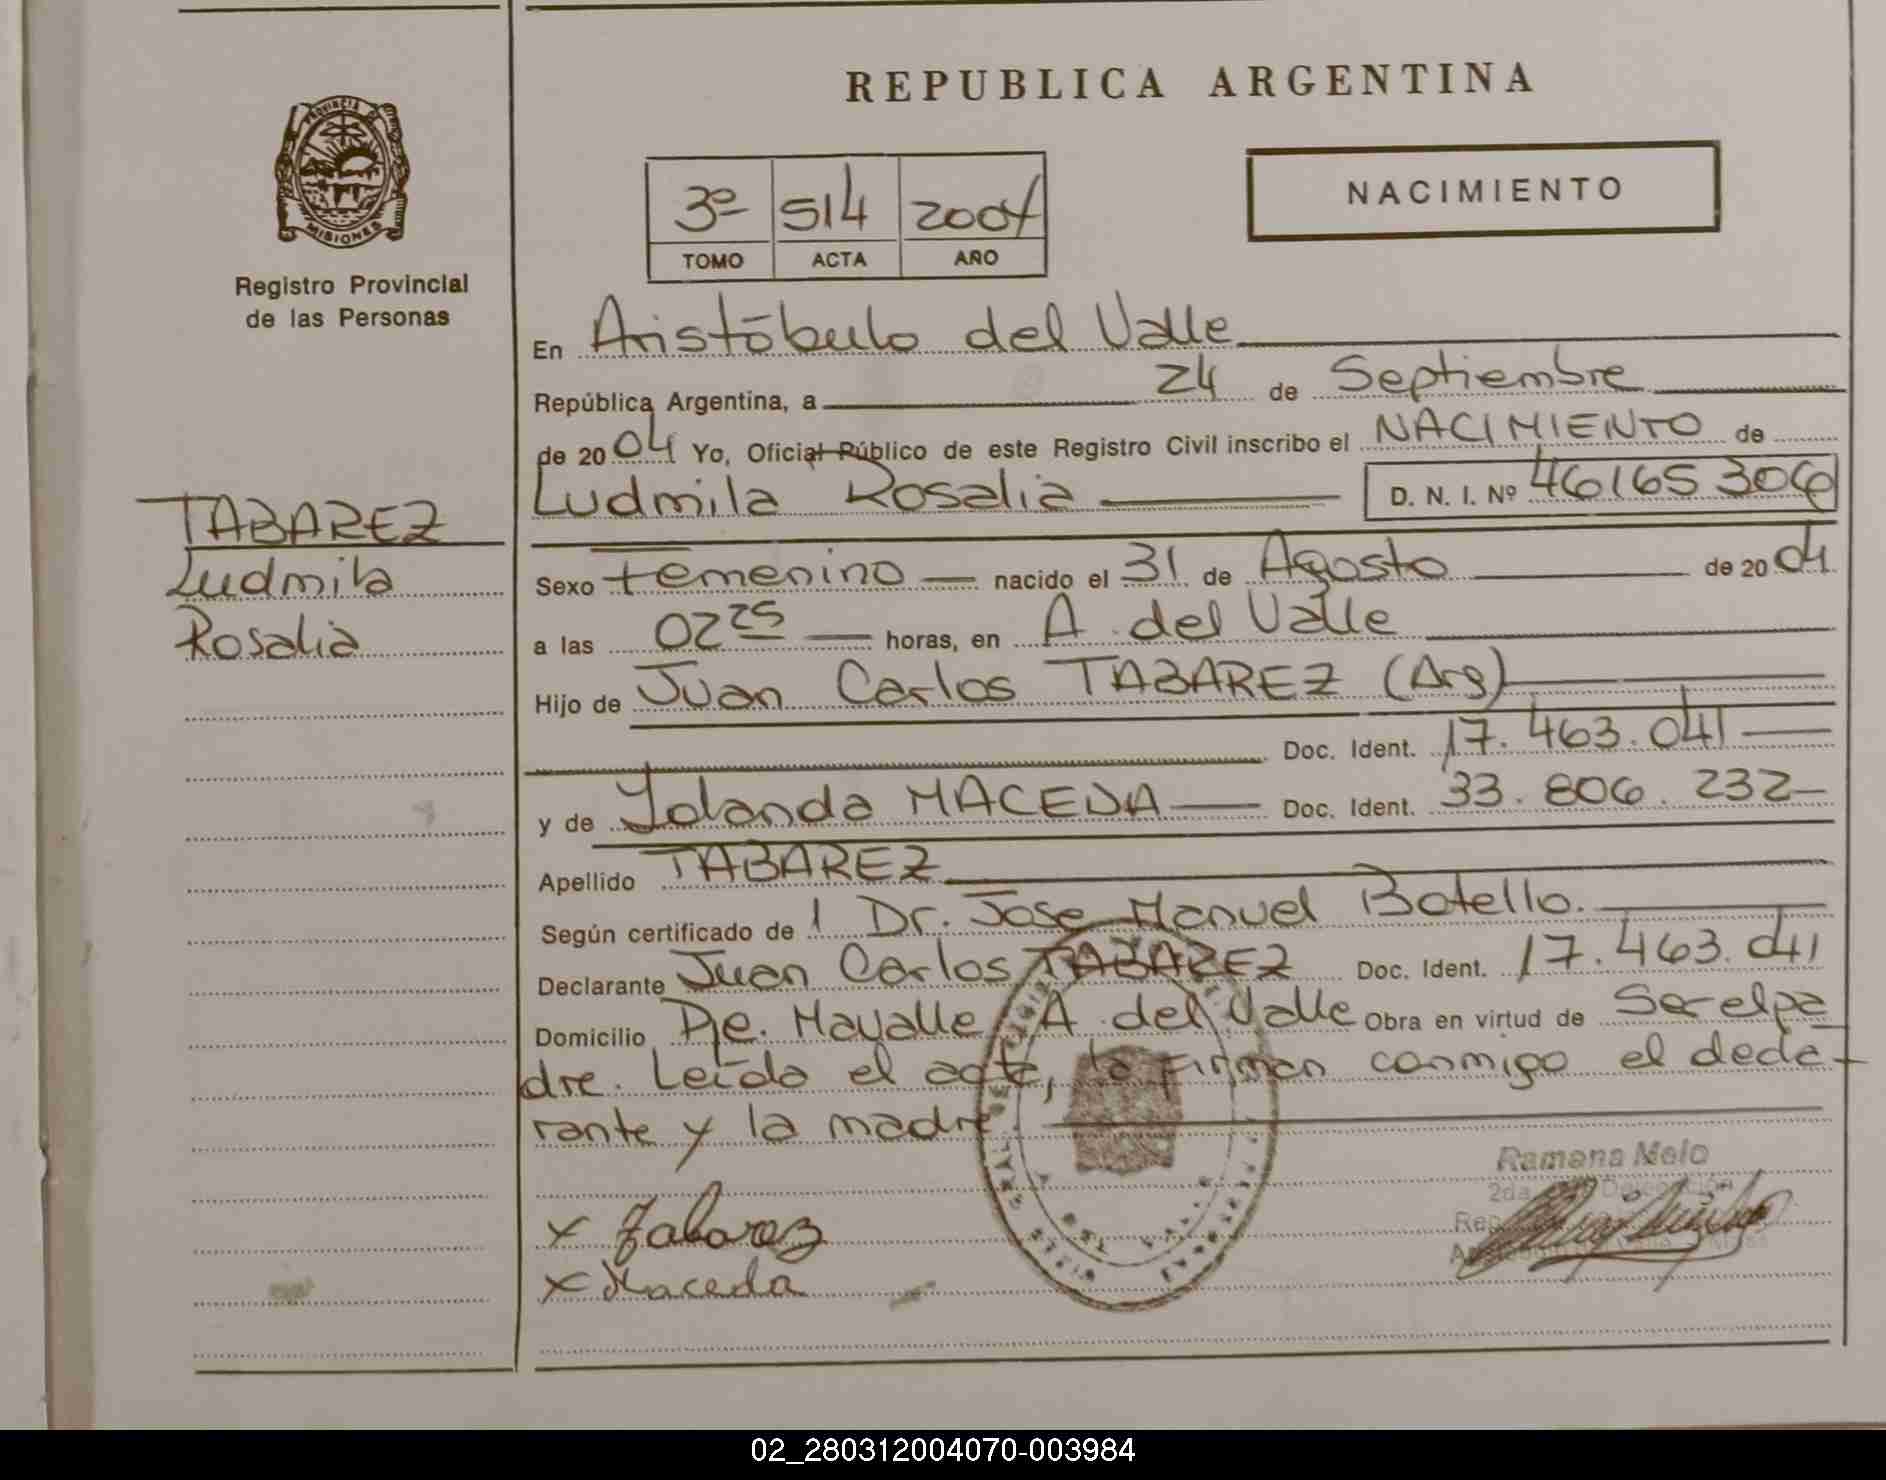 REPUBLICA ARGENTINA
PROVINCIA
MISIONES
Registro Provincial
de las Personas
3º 514 2004
TOMO ACTA AÑO
NACIMIENTO
TABAREZ
Ludmila
Rosalia
En Aristóbulo del Valle
República Argentina, a 24 de Septiembre
de 2004 Yo, Oficial Público de este Registro Civil inscribo el NACIMIENTO de
Ludmila Rosalia D. N. I. Nº 46165306
Sexo Femenino nacido el 31 de Agosto de 2004
a las 02 25 horas, en A. del Valle
Hijo de Juan Carlos TABAREZ (Arg)
Doc. Ident. 17.463.041
y de Yolanda MACEDA Doc. Ident. 33.806.232
Apellido TABAREZ
Según certificado de 1 Dr. Jose Manuel Botello.
Declarante Juan Carlos TABAREZ Doc. Ident. 17.463.041
Domicilio Pje. Mavalle A. del Valle Obra en virtud de Ser el pa
dre. Leída el acta, la firman conmigo el decla-
rante y la madre.
Ramona Melo
x Tabarez
x Maceda
02_280312004070-003984